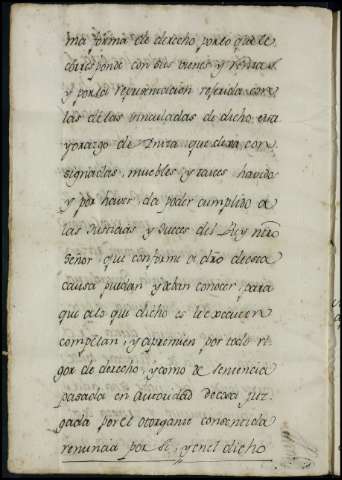 ma forma de derecho por lo que le
corresponde con sus vienes y rentas
y por la representacion referida con
las de las vinculadas de dicho ma
yorazgo de que dexa con
signadas, muebles y raices havido
y por haver, da poder cumplido a
las Justicias y Jueces del Rey nrõ
Señor, que conforme a dro de esta
causa puedan y devan conocer, para
que a lo que dicho es le executen
compelan, y apremien por todo ri
gor de derecho, y como de sentencia
pasada en autoridad de cosa juz
gada por el otorgante consentida
renuncia por si, y en el dicho